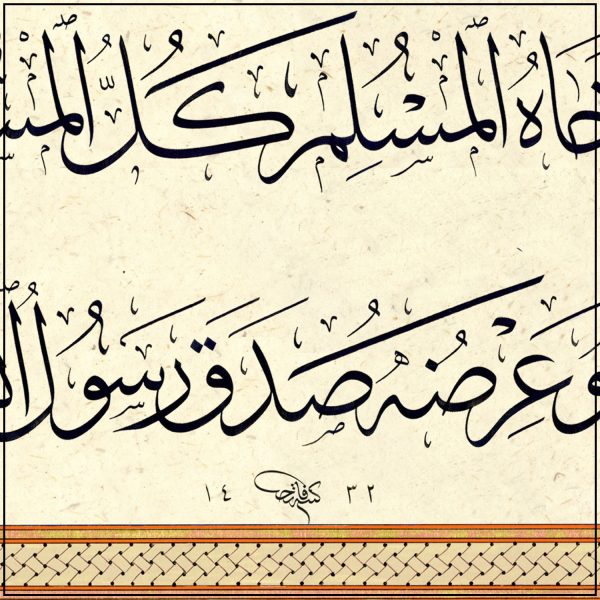 خَاهُ الْمُسْلِمِ كُلُّ الْمُسْ
وَعِرْضُهُ صَدَقَ رَسُولُ ال
١٤ ٣٢